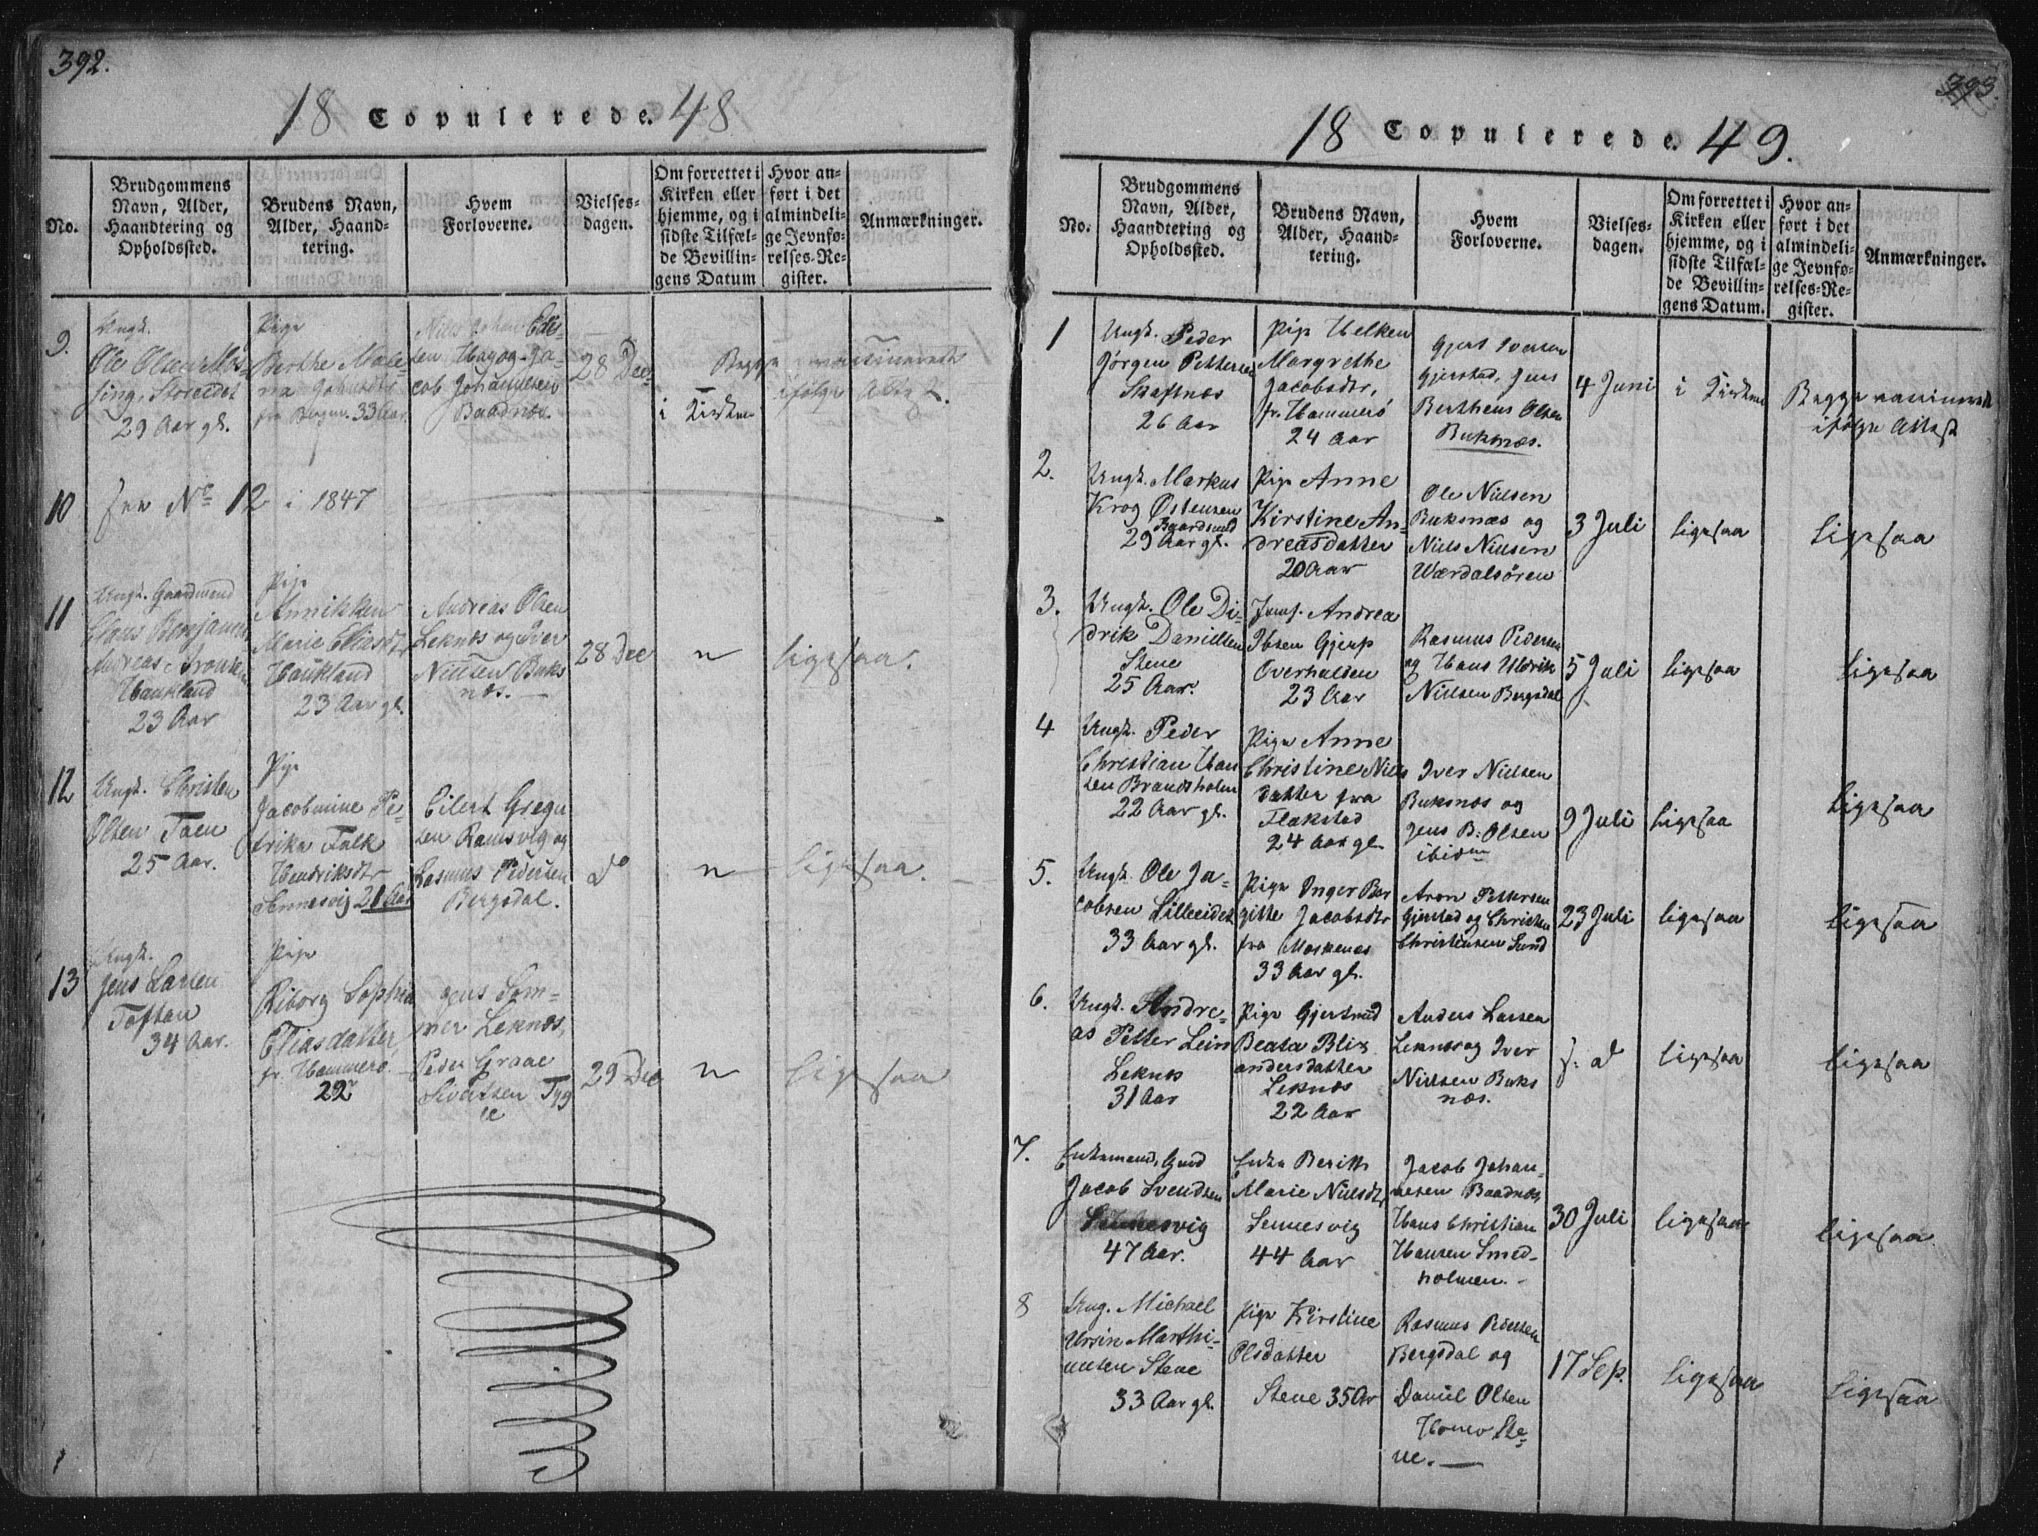 392.
18 Copulerede. 48
No.
Brudgommens
Navn, Alder,
Haandtering og
Opholdssted.
Brudens Navn,
Alder, Haand-
tering.
Hvem
Forloverne.
Vielses-
dagen.
Om forrettet i
Kirken eller
hjemme, og i
sidste Tilfæl-
de Bevillin-
gens Datum
Hvor an-
ført i det
almindeli-
ge Jevnfø-
relses-Re-
gister.
Anmærkninger.
9.
Ungk.
Ole Olsen
Storeidet
29 Aar gl.
Pige
Berthe Male
na
fra Bergen 33 Aar
Niels Johan
sen Hag og Ja-
cob Johannesen
Baadnæs.
28 Dec
i Kirken
Begge vaccinerede
ifølge Attest.
10
see No 12 i 1847
11
Ungk. Gaardmand
Benjamin
Andreas
Haukland
23 Aar
Pige
Annikken
Marie Eliasdtr
Haukland
23 Aar gl.
Andreas Olsen
Leknæs og Iver
Nielsen Buks
næs.
28 Dec
"
ligesaa.
12
Ungk. Christen
Olsen Taen
25 Aar.
Pige
Jacobmine Pe-
trika Falk
Hendriksdtr
Sennesvig 21 Aar
Eilert Gregu
sen Ramsvig og
Rasmus Pedersen
Bergsdal.
d
"
ligesaa.
13
Ungk.
Jens Larsen
Toften
34 Aar.
Pige
Riborg Sophia
Eliasdatter,
fr. Hammerø
22
Jens Som-
mer Leknæs,
Peder Graae
Sivertsen Tyg
29 Dec
"
ligesaa
393.
18 Copulerede. 49.
No.
Brudgommens
Navn, Alder,
Haandtering og
Opholdssted.
Brudens Navn,
Alder, Haand-
tering.
Hvem
Forloverne.
Vielses-
dagen.
Om forrettet i
Kirken eller
hjemme, og i
sidste Tilfæl-
de Bevillin-
gens Datum.
Hvor an-
ført i det
almindeli-
ge Jevnfø-
relses-Re-
gister.
Anmærkninger.
1
Ungk. Peder
Jørgen Pettersen
Skaftnæs
26 Aar
Pige Helken
Margrethe
Jacobsdtr,
fr. Hammerø
24 Aar
Gjert Iversen
Gjerstad, Jens
Bertheus Olsen
Buksnæs.
4 Juni
i Kirken
Begge vaccinerede
ifølge Attest
2.
Ungk. Markus
Krog Østensen
29 Aar gl.
Pige Anne
Kirstine An-
dreasdatter
20 Aar
Ole Nielsen
Buksnæs og
Niels Nielsen
Wærdalsören
3 Juli
ligesaa
ligesaa
3.
Ungk. Ole Di-
drik Danielsen
Stene
25 Aar.
Jomf. Andrea
Ibsen Gjerp
Overhalden
23 Aar
Rasmus Pedersen
og Hans Uldrik
Nielsen Bergsdal
5 Juli
ligesaa
ligesaa
4
Ungk. Peder
Christian Han
sen Brandsholm
22 Aar gl.
Pige Anne
Christine Niels
datter fra
Flakstad
24 Aar gl.
Iver Nielsen
Buksnæs og
Jens B: Olsen
ibidm
9 Juli
ligesaa
ligesaa
5.
Ungk. Ole Ja-
cobsen Lilleeidet
33 Aar gl.
Pige Inger Bar
gitte Jacobsdtr
fra Moskenæs
33 Aar gl.
Aron Pettersen
Gjerstad og Christen
Christensen Sund
23 Juli
ligesaa
ligesaa
6.
Ungk. Andre-
as Petter Lein
Leknæs
31 Aar
Pige Gjertrud
Beata Blix
andersdatter
Leknæs
22 Aar
Anders Larsen
Leknæs og Iver
Nielsen Buks
næs.
s. d
ligesaa
ligesaa
7.
Enkemand, Gmd
Jacob Svendsen
Sennesvig
47 Aar.
Enke Berith
Marie Nielsdtr
Sennesvig
44 Aar
Jacob Johan-
nesen Baadnæs,
Hans Christian
Hansen Smed-
holmen. -
30 Juli
ligesaa
ligesaa
8
Ung. Michael
Ursin Marthi-
nusen Stene
33 Aar gl.
Pige Kirstine
Olsdatter
Stene 35 Aar
Rasmus
Bergsdal og
Daniel Olsen
ne.
17 Sep.
ligesaa
ligesaa